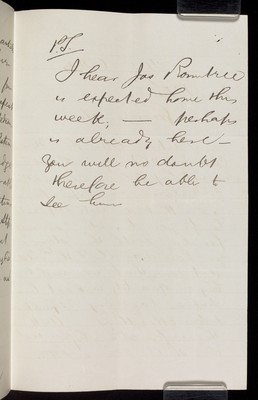 P.S
I hear Jas Rowntree
is expected home this
week; — perhaps
is already here —
You will no doubt
therefore be able to
see him